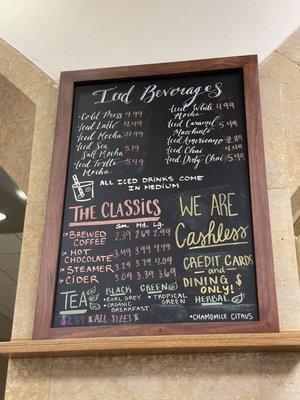 Iced Beverages
Cold Press 4.99
Iced Latte 4.49
Iced Mocha 4.99
Iced Sea 5.19
Salt Mocha
Iced Turtle 5.49
Mocha
Iced White 4.99
Mocha
Iced Caramel 5.49
Macchiato
Iced Americano 2.89
Iced Chai 4.49
Iced Dirty Chai 5.49
ALL ICED DRINKS COME
IN MEDIUM
THE CLASSICS
Sm. Md. Lg.
BREWED COFFEE 2.39 2.69 2.99
HOT CHOCOLATE 3.49 3.99 4.49
STEAMER 3.29 3.79 4.09
CIDER 3.09 3.39 3.69
TEA
$2.69
BLACK
• EARL GREY
• ORGANIC
BREAKFAST
GREEN
• TROPICAL
GREEN
HERBAL
• CHAMOMILE CITRUS
* ALL SIZES *
WE ARE
Cashless
CREDIT CARDS
and
DINING $
ONLY!